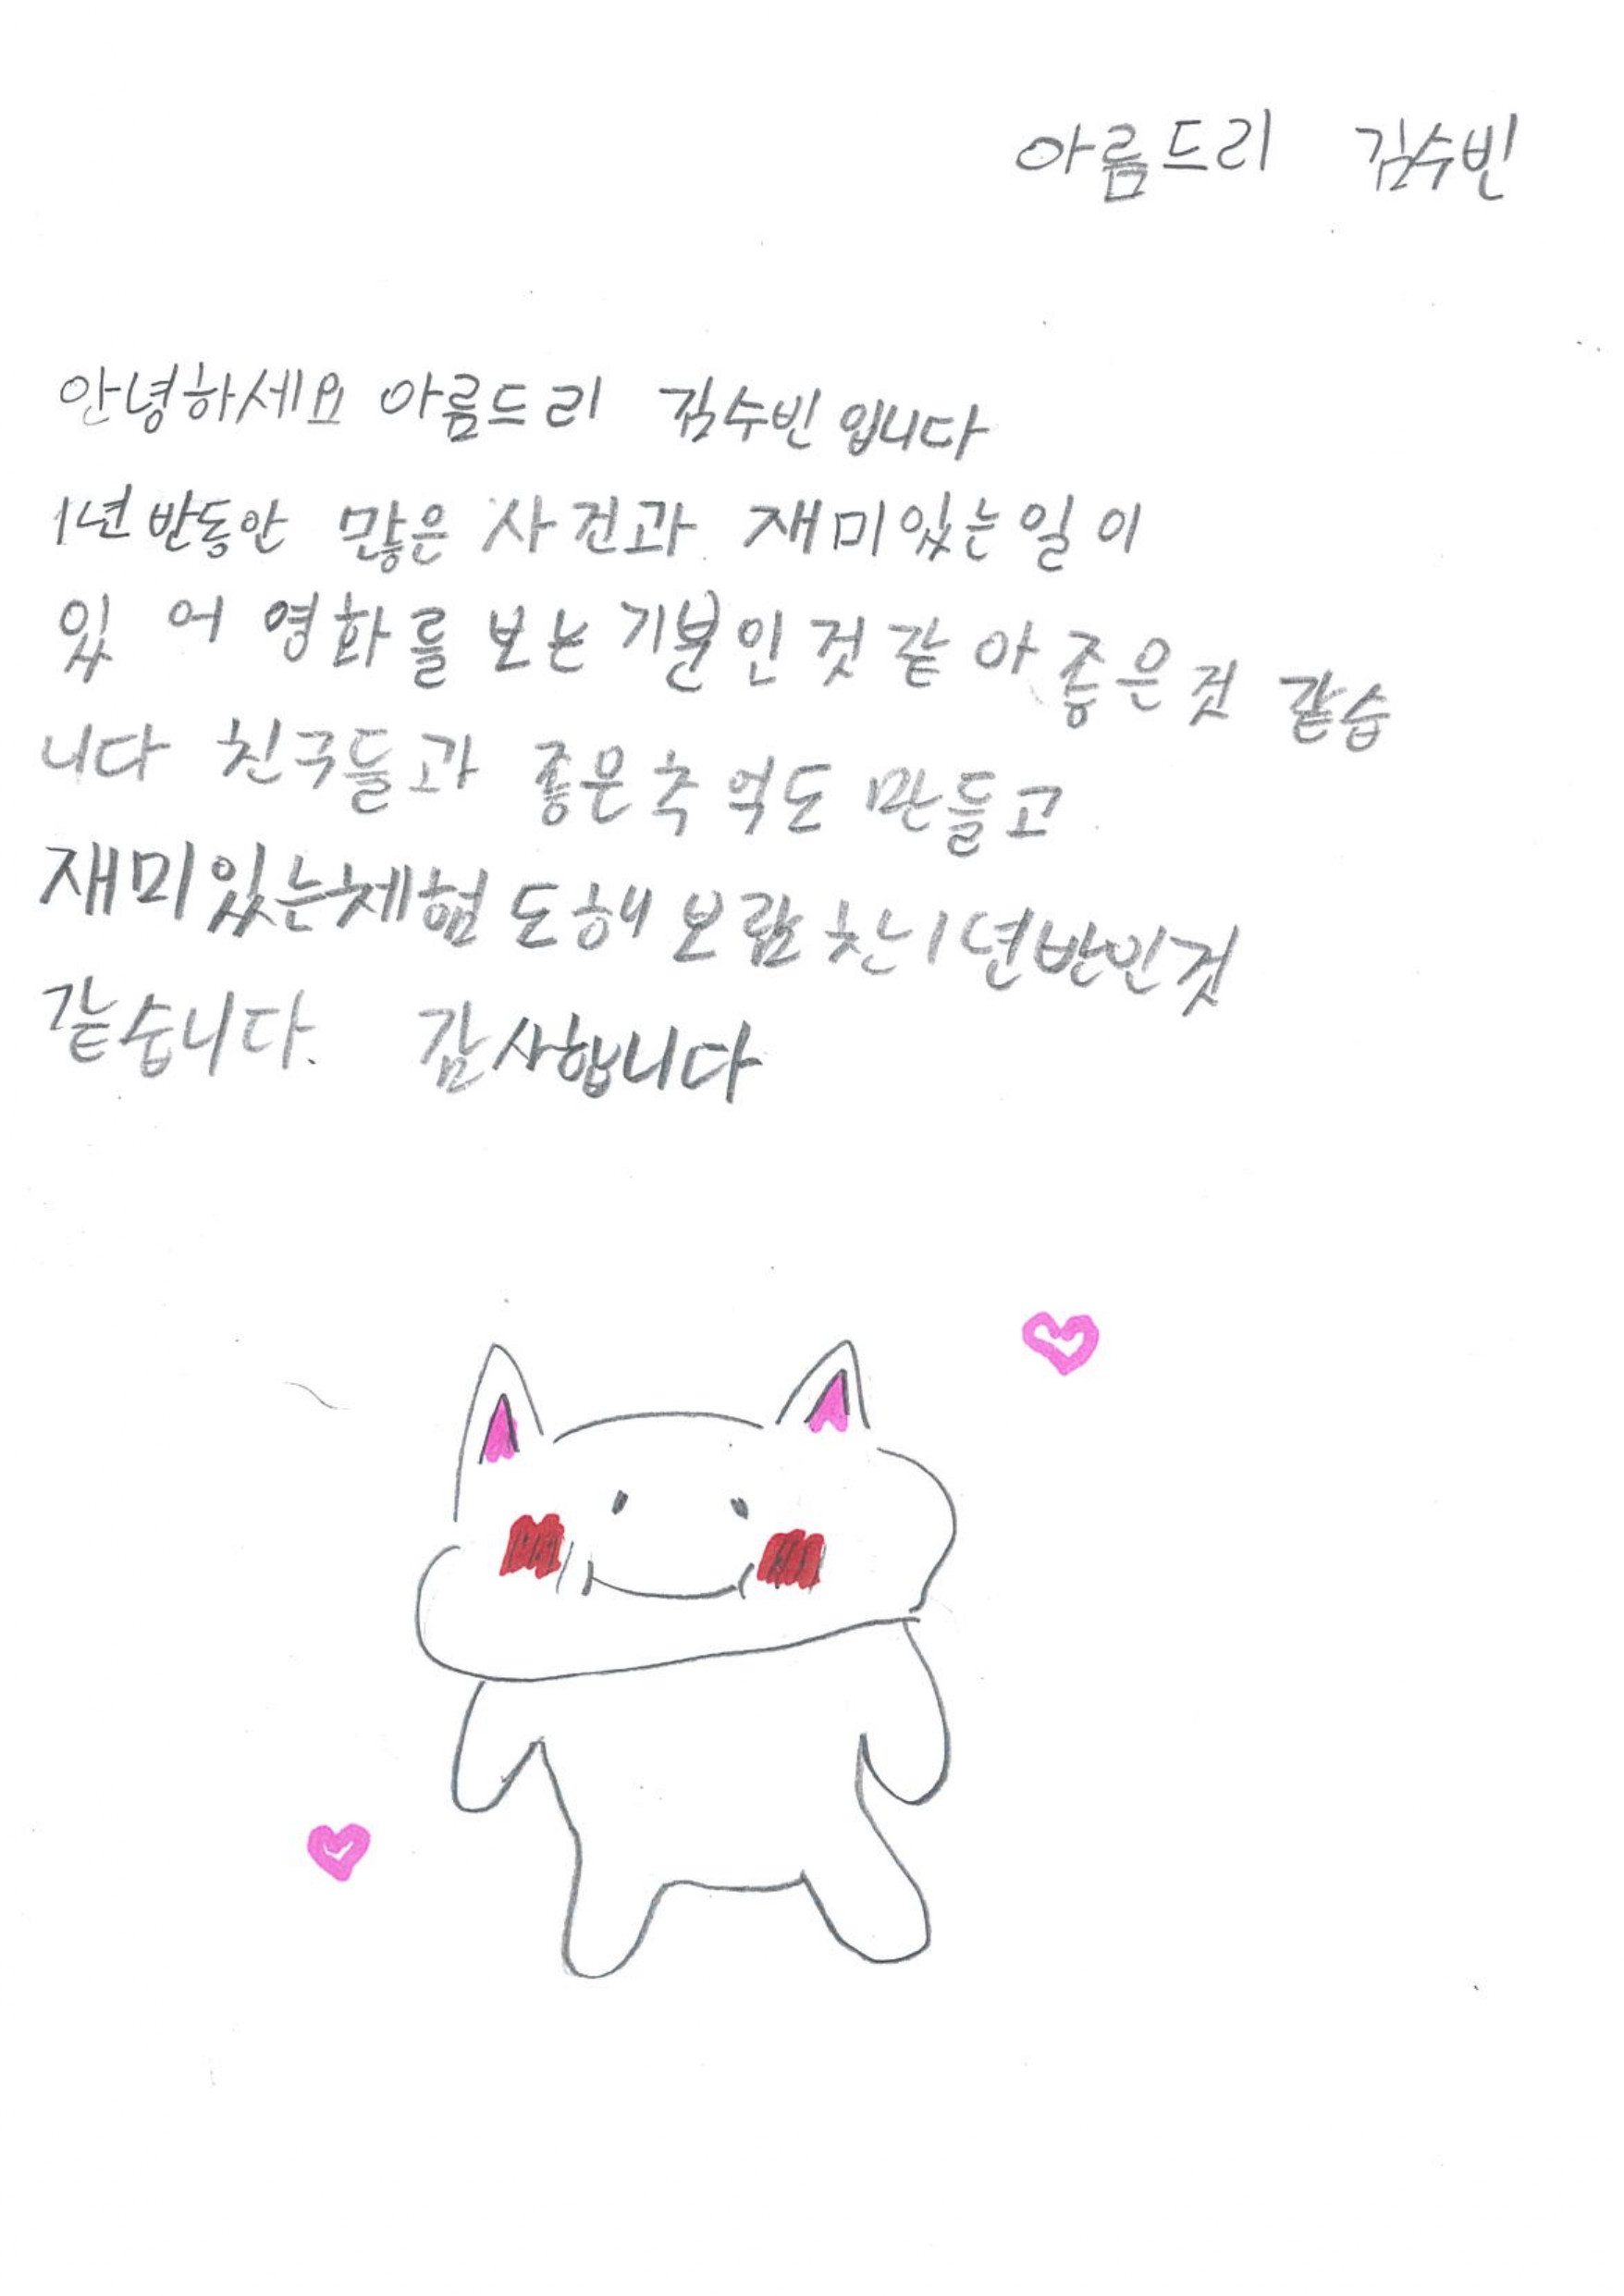 아름드리 김수빈
안녕하세요 아름드리 김수빈 입니다
1년 반동안 많은 사건과 재미있는일이
있어 영화를 보는 기분인것 같아 좋은것 같습
니다 친구들과 좋은추억도 만들고
재미있는체험도해 보람찬1년반인것
같습니다. 감사합니다